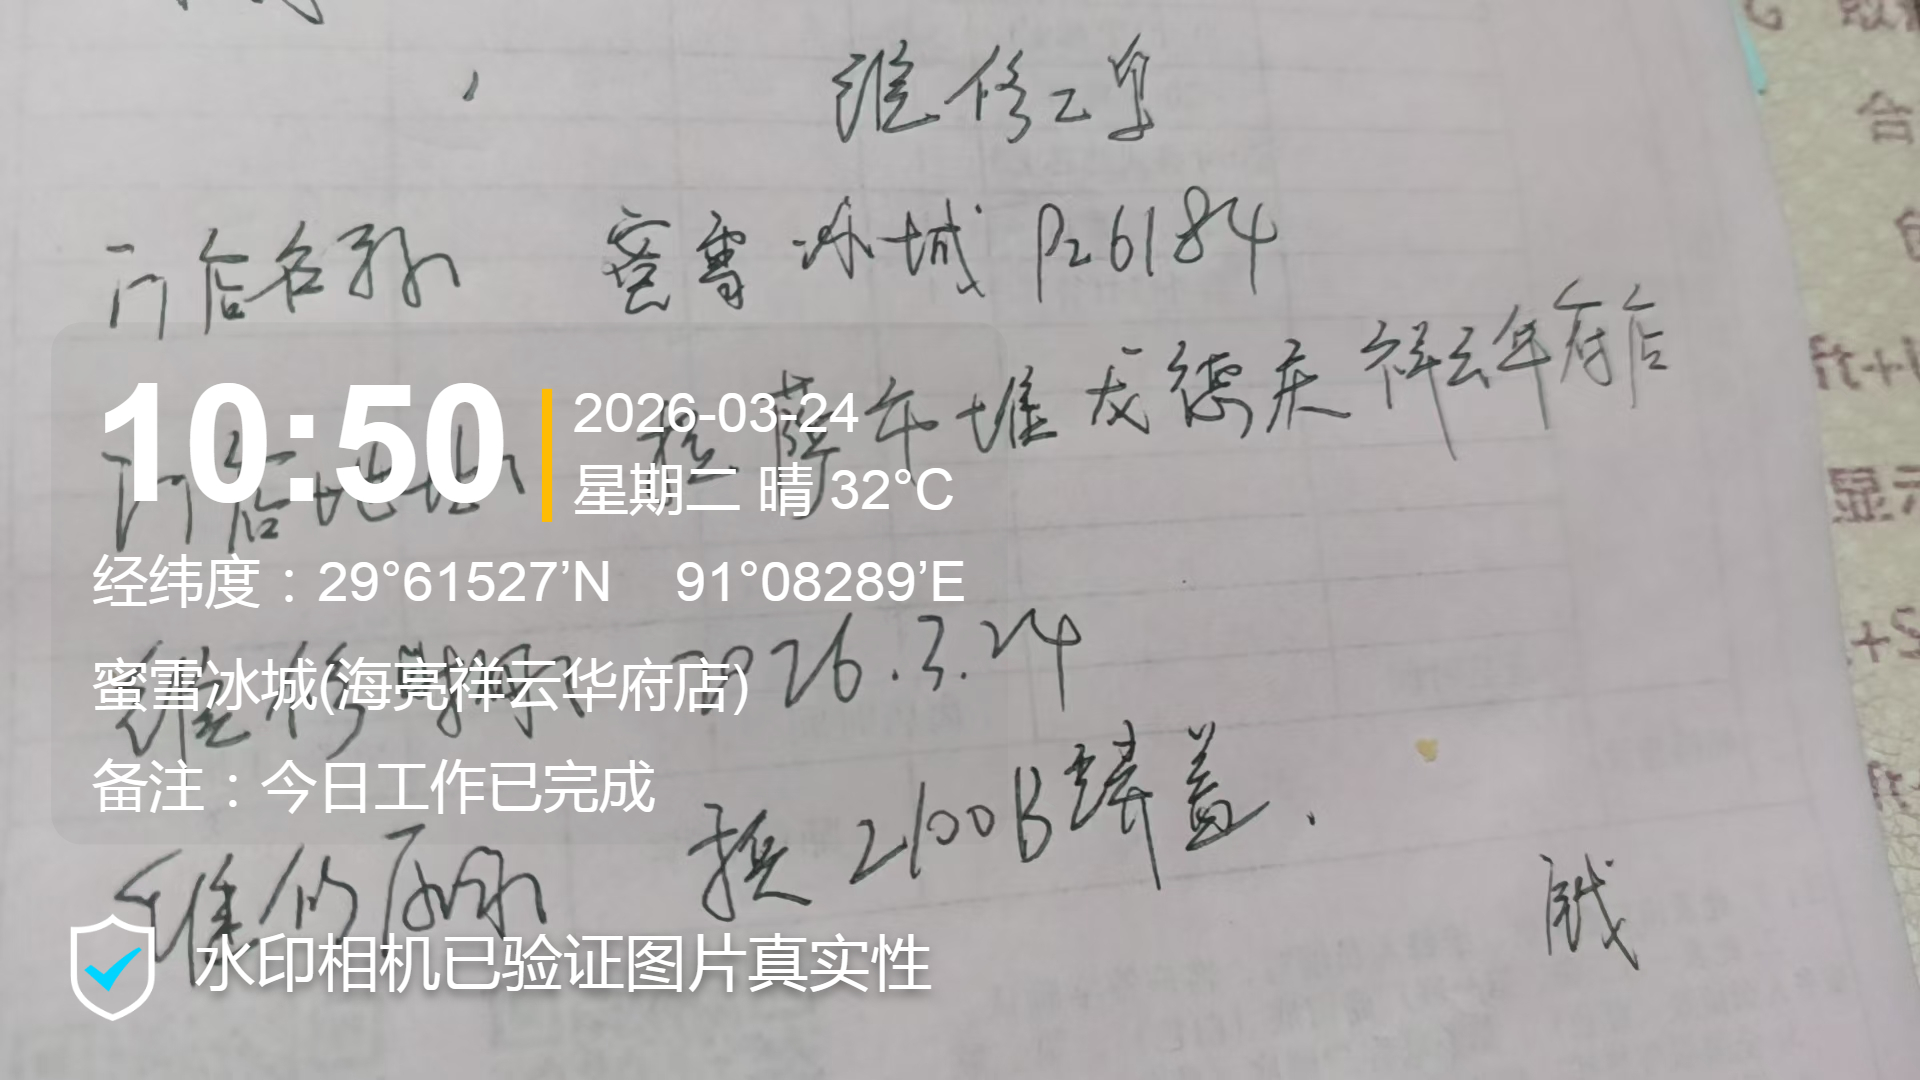 维修工单
门店名称 蜜雪冰城 P26184
门店地址 拉萨市堆龙德庆祥云华府店
10:50
2026-03-24
星期二 晴 32°C
经纬度：29°61527’N 91°08289’E
2026.3.24
蜜雪冰城(海亮祥云华府店)
备注：今日工作已完成
维修 换2100B 盖.
水印相机已验证图片真实性
台
显示